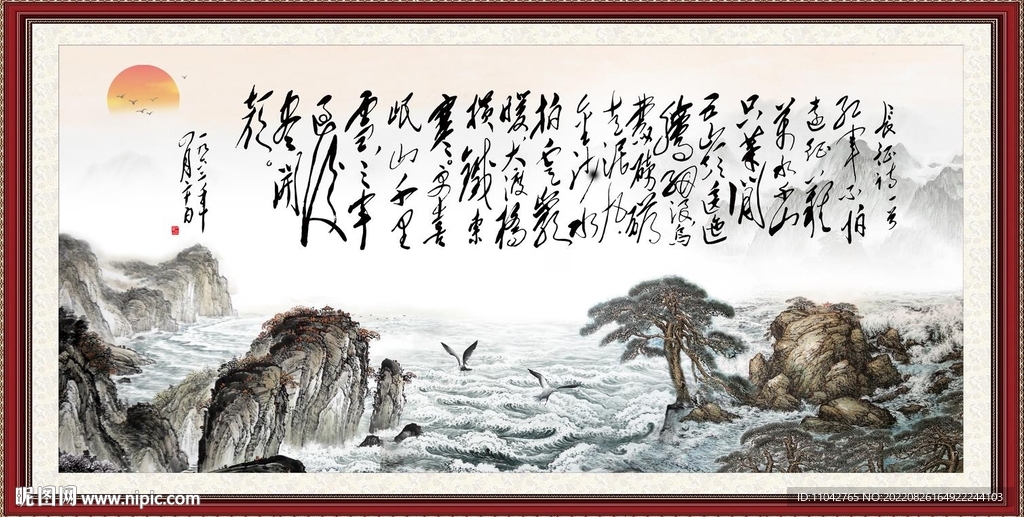 長征詩一首
红軍不怕
遠征難
萬水千山
只等閒
五嶺逶迤
騰細浪烏
蒙磅礴
走泥丸
金沙水
拍雲崖
暖，大渡橋
横鐵索
寒。更喜
岷山千里
雪，三軍
過後
盡開
颜。
一九六二年
四月二十日
昵图网 www.nipic.com
ID:11042765 NO:20220826164922244103